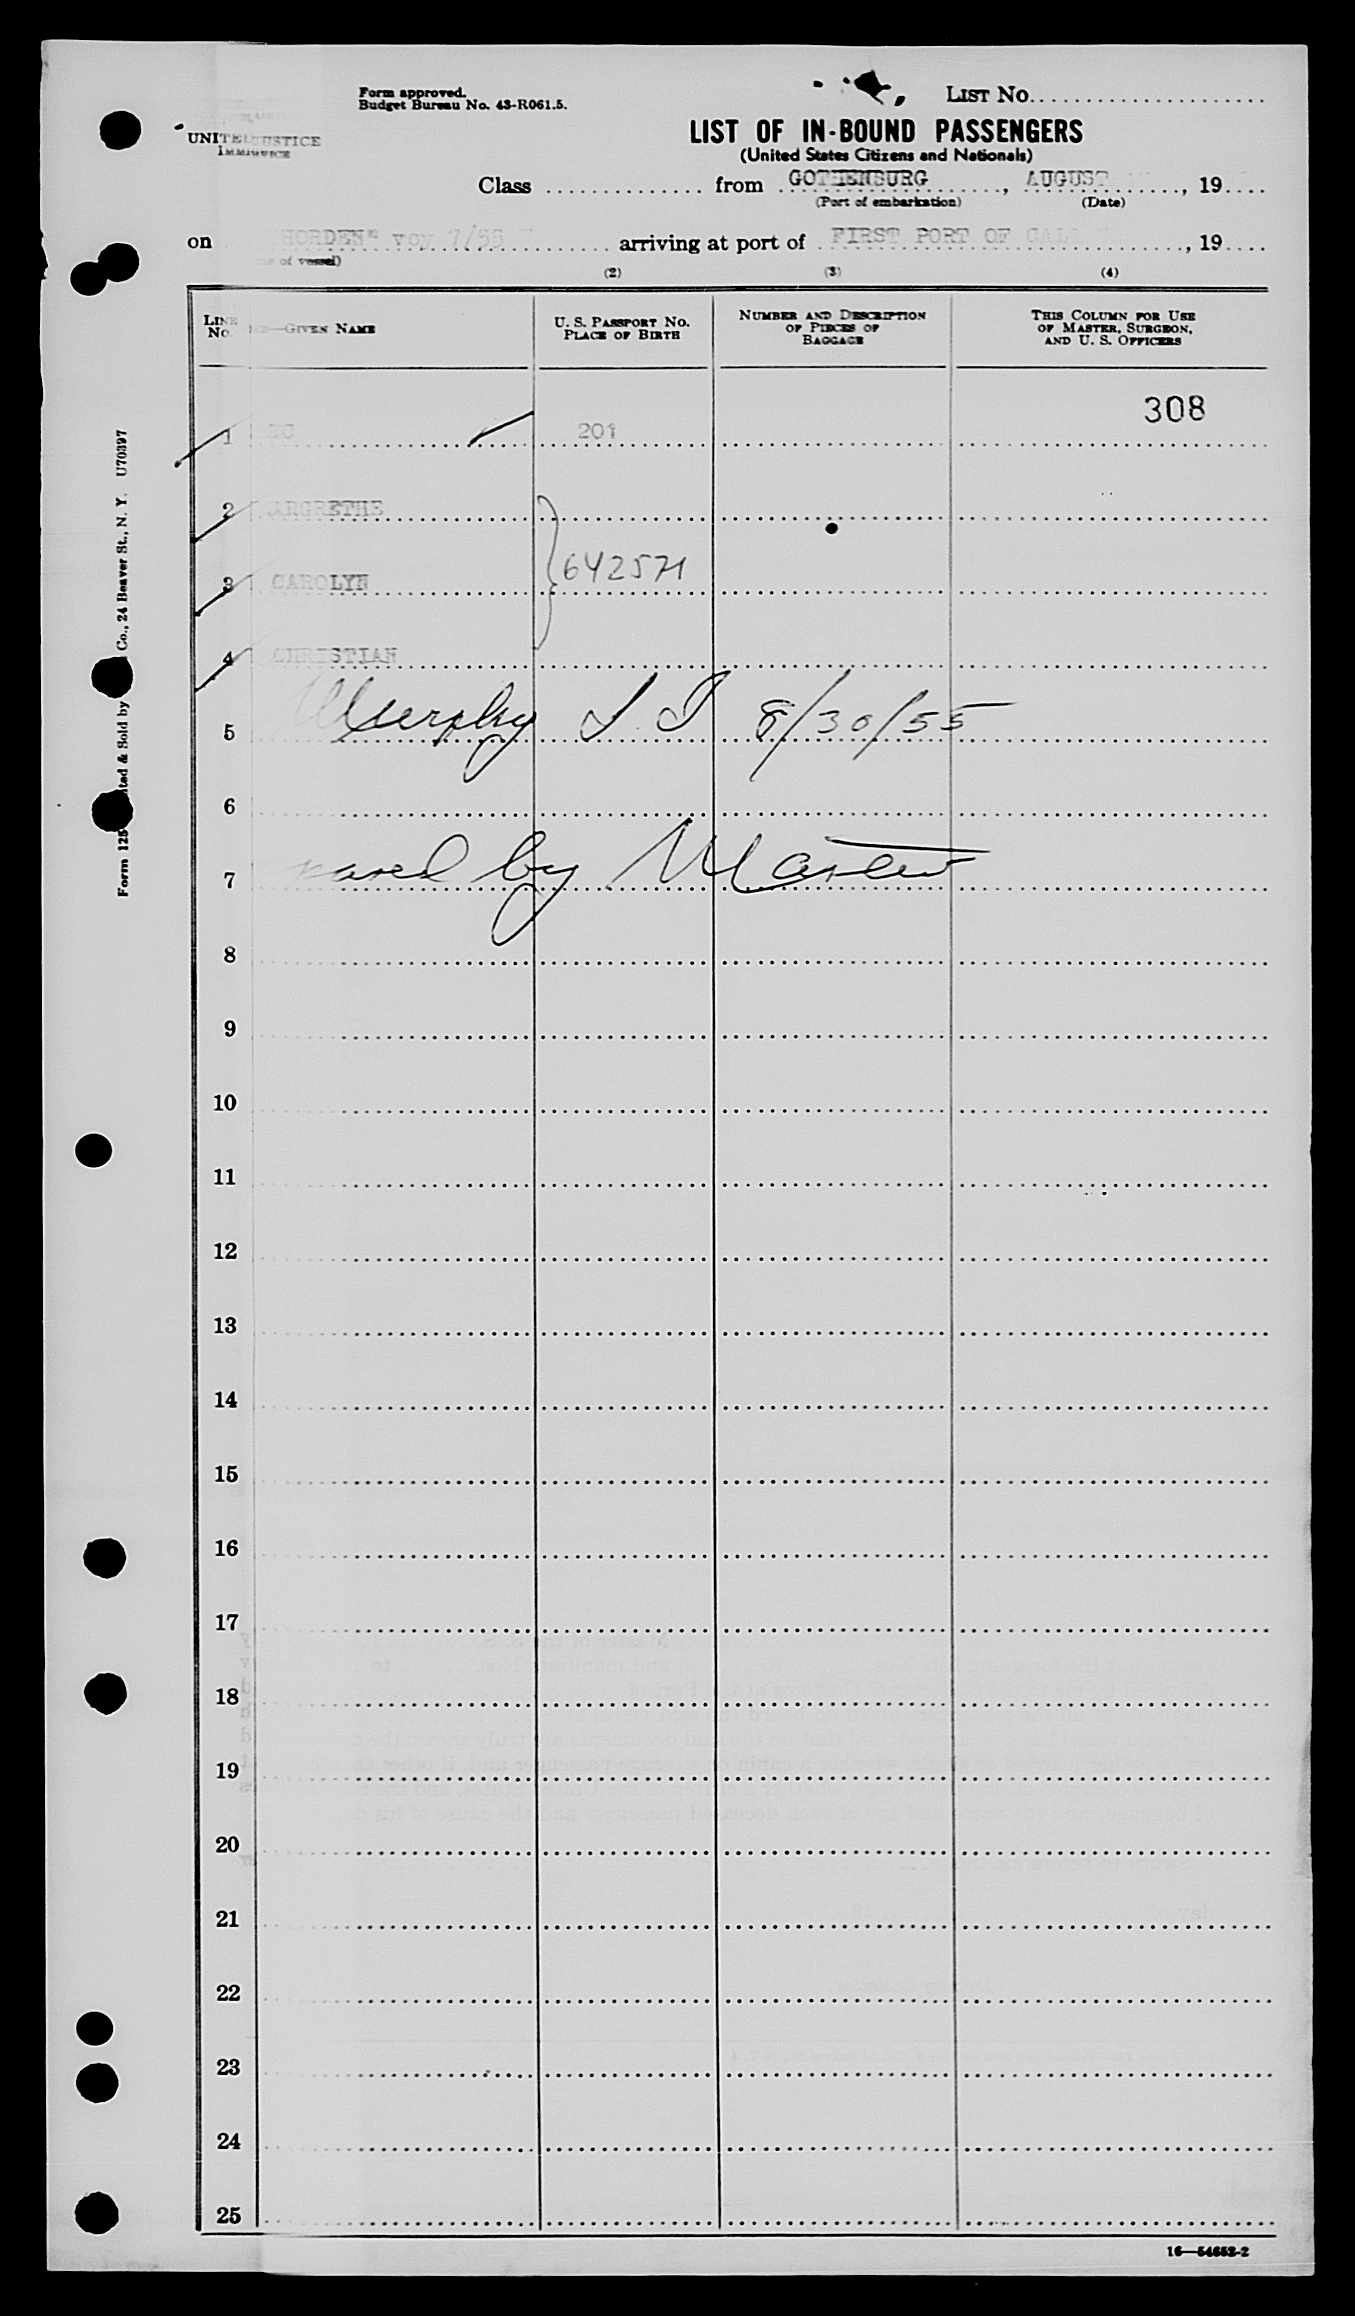 Form approved.
Budget Bureau No. 43-R061.5.
LIST No.
UNITE USTICE
LIST OF IN-BOUND PASSENGERS
(United States Citizens and Nationals)
Class from GOTHENBURG, AUGUST, 19
(Port of embarkation) (Date)
on HORDEN" voy 7/55 arriving at port of FIRST PORT OF CALL, 19
of vessel)
(2) (3) (4)
LINE No.
—GIVEN NAME
U. S. PASSPORT NO.
PLACE OF BIRTH
NUMBER AND DESCRIPTION
OF PIECES OF
BAGGAGE
THIS COLUMN FOR USE
OF MASTER, SURGEON,
AND U. S. OFFICERS
308
1 201
2 ARGRETHE
3 CAROLYN 642571
4 CHRISTIAN
5 Murphy I. I 8/30/55
6
7 by Master
8
9
10
11
12
13
14
15
16
17
18
19
20
21
22
23
24
25
16—54652-2
Form 125 nted & Sold by Co., 24 Beaver St., N. Y. U70397